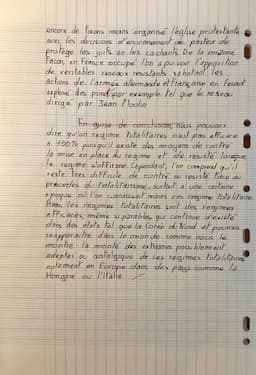 encore de façons moins organisé l'église protestante
avec les décisions d'énormément de pasteur de
protège les juifs en les cachants. De la même
façon, en France occupé l'on a pu voir l'apparition
de véritables réseaux résistants sabotant les
actions de l'armée allemande et française en fesant
exposé des ponts par exemple tel que le réseau
dirigé par Jean Moulin
En guise de conclusion, nous pouvons
dire qu'un régime totalitaires n'est pas efficace
a 100% puisqu'il existe des moyens de contré
la mise en place du régime et de résisté lorsque
le régime s'affirme. Cependant, l'on comprend qu'il
reste très difficile de contré ou résisté face au
procédés du totalitarisme, surtout a une certaine
époque où l'on connaissait moins ces régime totalitaire.
Ainsi, les régimes totalitaires sont des régimes
efficaces, même si parables, qui continue d'existé
dans des états tel que la Corée du Nord et pourrais
réapparaitre dans le monde comme nous le
montre la monté des extrêmes possiblement
adeptes ou nostalgique de ces régimes totalitaires
notement en Europe dans des pays comme la
Hongrie ou l'Italie.